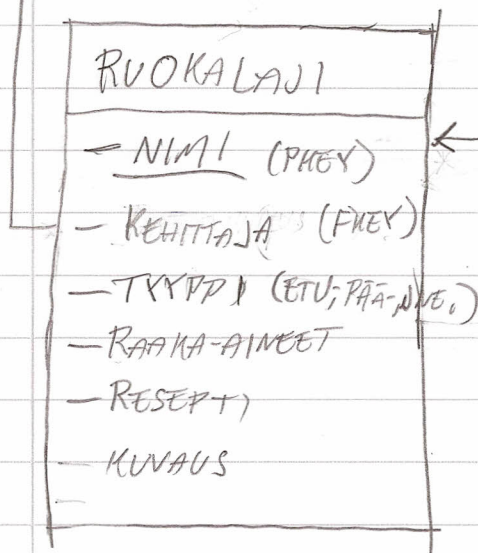 RUOKALAJI
- NIMI (PKEY)
- KEHITTAJA (FKEY)
- TYYPPI (ETU-, PÄÄ-, JNE.)
- RAAKA-AINEET
- RESEPTI
- KUVAUS